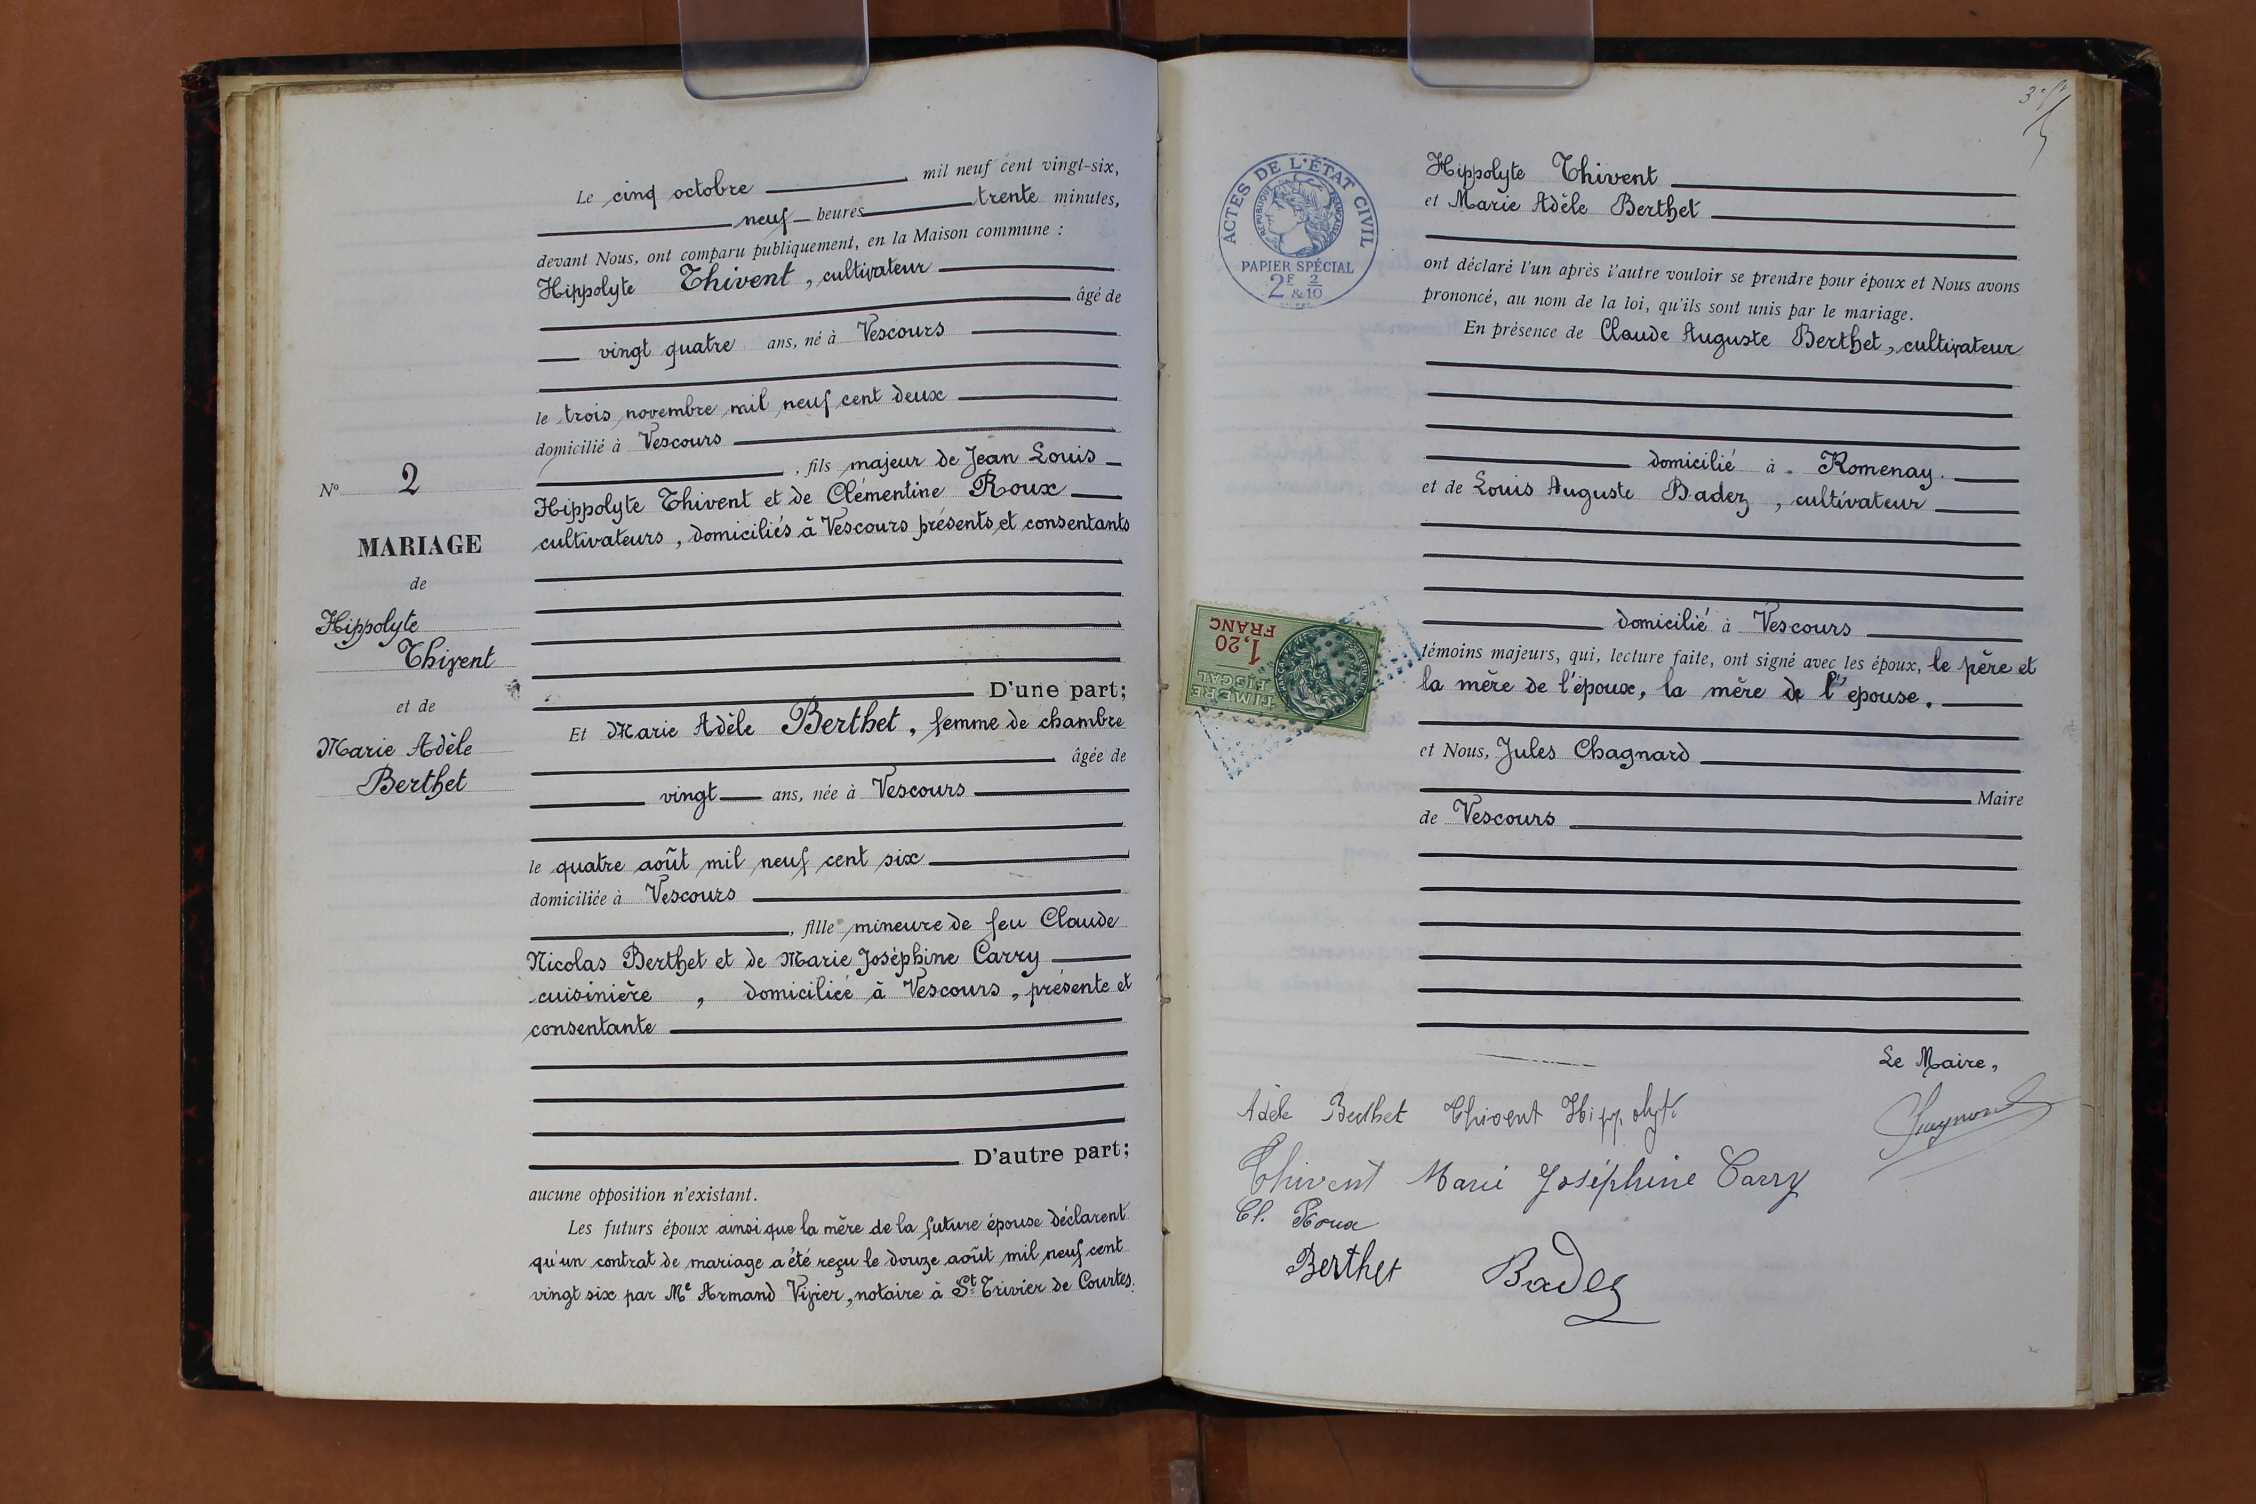 Nº 2
MARIAGE
de
Hippolyte
Thivent
et de
Marie Adèle
Berthet
Le cinq octobre mil neuf cent vingt-six,
neuf heures trente minutes,
devant Nous, ont comparu publiquement, en la Maison commune :
Hippolyte Thivent, cultivateur
âgé de
vingt quatre ans, né à Vescours
le trois novembre mil neuf cent deux
domicilié à Vescours
, fils majeur de Jean Louis
Hippolyte Thivent et de Clémentine Roux
cultivateurs, domiciliés à Vescours présents et consentants
D'une part;
Et Marie Adèle Berthet, femme de chambre
âgée de
vingt ans, née à Vescours
le quatre août mil neuf cent six
domiciliée à Vescours
, fille mineure de feu Claude
Nicolas Berthet et de Marie Joséphine Carry
cuisinière, domiciliée à Vescours, présente et
consentante
D'autre part;
aucune opposition n'existant.
Les futurs époux ainsi que la mère de la future épouse déclarent
qu'un contrat de mariage a été reçu le douze août mil neuf cent
vingt six par Me Armand Vivier, notaire à St Trivier de Courtes.
ACTES DE L'ÉTAT CIVIL
RÉPUBLIQUE FRANÇAISE
PAPIER SPÉCIAL
2F 2
&10
Hippolyte Thivent
et Marie Adèle Berthet
ont déclaré l'un après l'autre vouloir se prendre pour époux et Nous avons
prononcé, au nom de la loi, qu'ils sont unis par le mariage.
En présence de Claude Auguste Berthet, cultivateur
domicilié à Romenay.
et de Louis Auguste Badez, cultivateur
domicilié à Vescours
témoins majeurs, qui, lecture faite, ont signé avec les époux, le père et
la mère de l'époux, la mère de l'epouse.
et Nous, Jules Chagnard
Maire
de Vescours
TIMBRE
FISCAL
1,20
FRANC
Le Maire,
Adèle Berthet Thivent Hippolyte
Thivent Marie Joséphine Carry
Cl. Roux
Berthet Badez